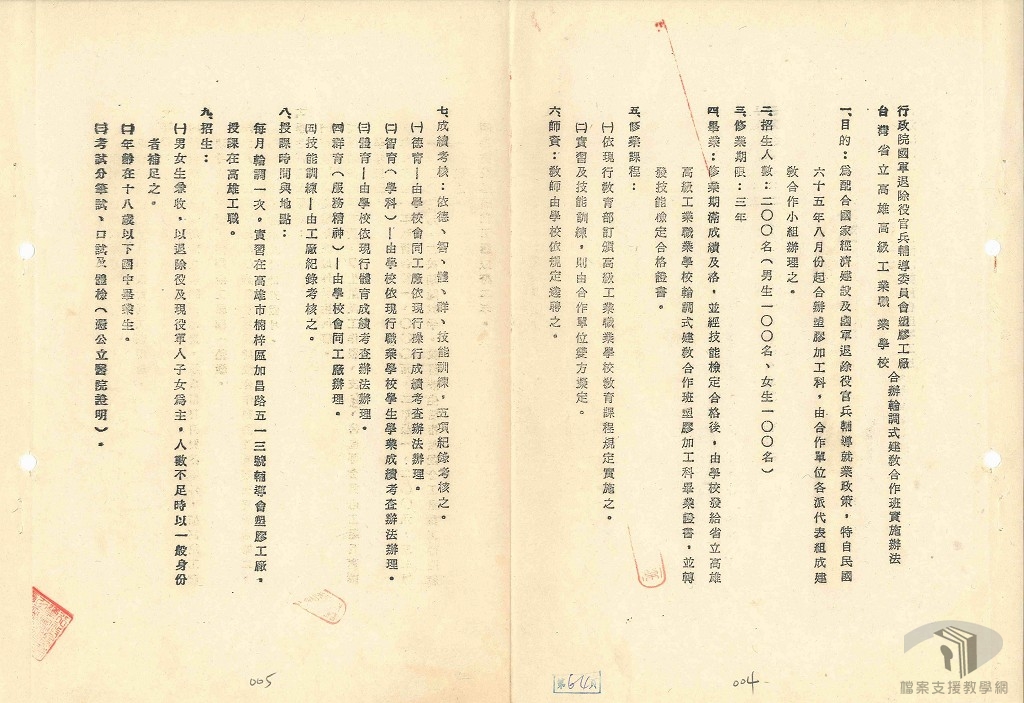 行政院國軍退除役官兵輔導委員會塑膠工廠
台灣省立高雄高級工業職業學校
合辦輪調式建敎合作班實施辦法
一、目的：為配合國家經濟建設及國軍退除役官兵輔導就業政策，特自民國
六十五年八月份起合辦塑膠加工科，由合作單位各派代表組成建
敎合作小組辦理之。
二、招生人數：二〇〇名（男生一〇〇名、女生一〇〇名）
三、修業期限：三年
四、畢業：修業期滿成績及格，並經技能檢定合格後，由學校發給省立高雄
高級工業職業學校輪調式建敎合作班塑膠加工科畢業證書，並轉
發技能檢定合格證書。
五、修業課程：
㈠依現行敎育部訂頒高級工業職業學校敎育課程規定實施之。
㈡實習及技能訓練，則由合作單位雙方業定。
六、師資：敎師由學校依規定遴聘之。
七、成績考核：依德、智、體、群、技能訓練，五項紀錄考核之。
㈠德育－由學校會同工廠依現行操行成績考查辦法辦理。
㈡智育（學科）－由學校依現行職業學校學生學業成績考查辦法辦理。
㈢體育－由學校依現行體育成績考查辦法辦理。
㈣群育（服務精神）－由學校會同工廠辦理。
㈤技能訓練－由工廠紀錄考核之。
八、授課時間與地點：
每月輪調一次，實習在高雄市楠梓區加昌路五一三號輔導會塑膠工廠。
授課在高雄工職。
九、招生：
㈠男女生兼收，以退除役及現役軍人子女為主，人數不足時以一般身份
者補足之。
㈡年齡在十八歲以下國中畢業生。
㈢考試分筆試、口試及體檢（憑公立醫院證明）。
第64頁
004
005
檔案支援教學網